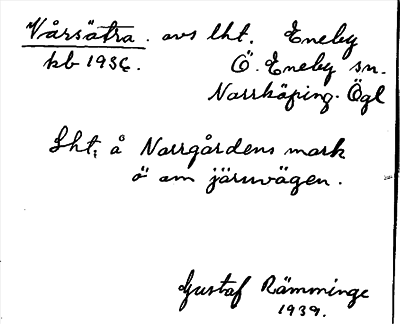 Vårsätra. avs lht. Eneby
kb 1936. Ö. Eneby sn.
Norrköping. Ögl
Lht, å Norrgårdens mark
ö om järnvägen.
Gustaf Rämminge
1939.